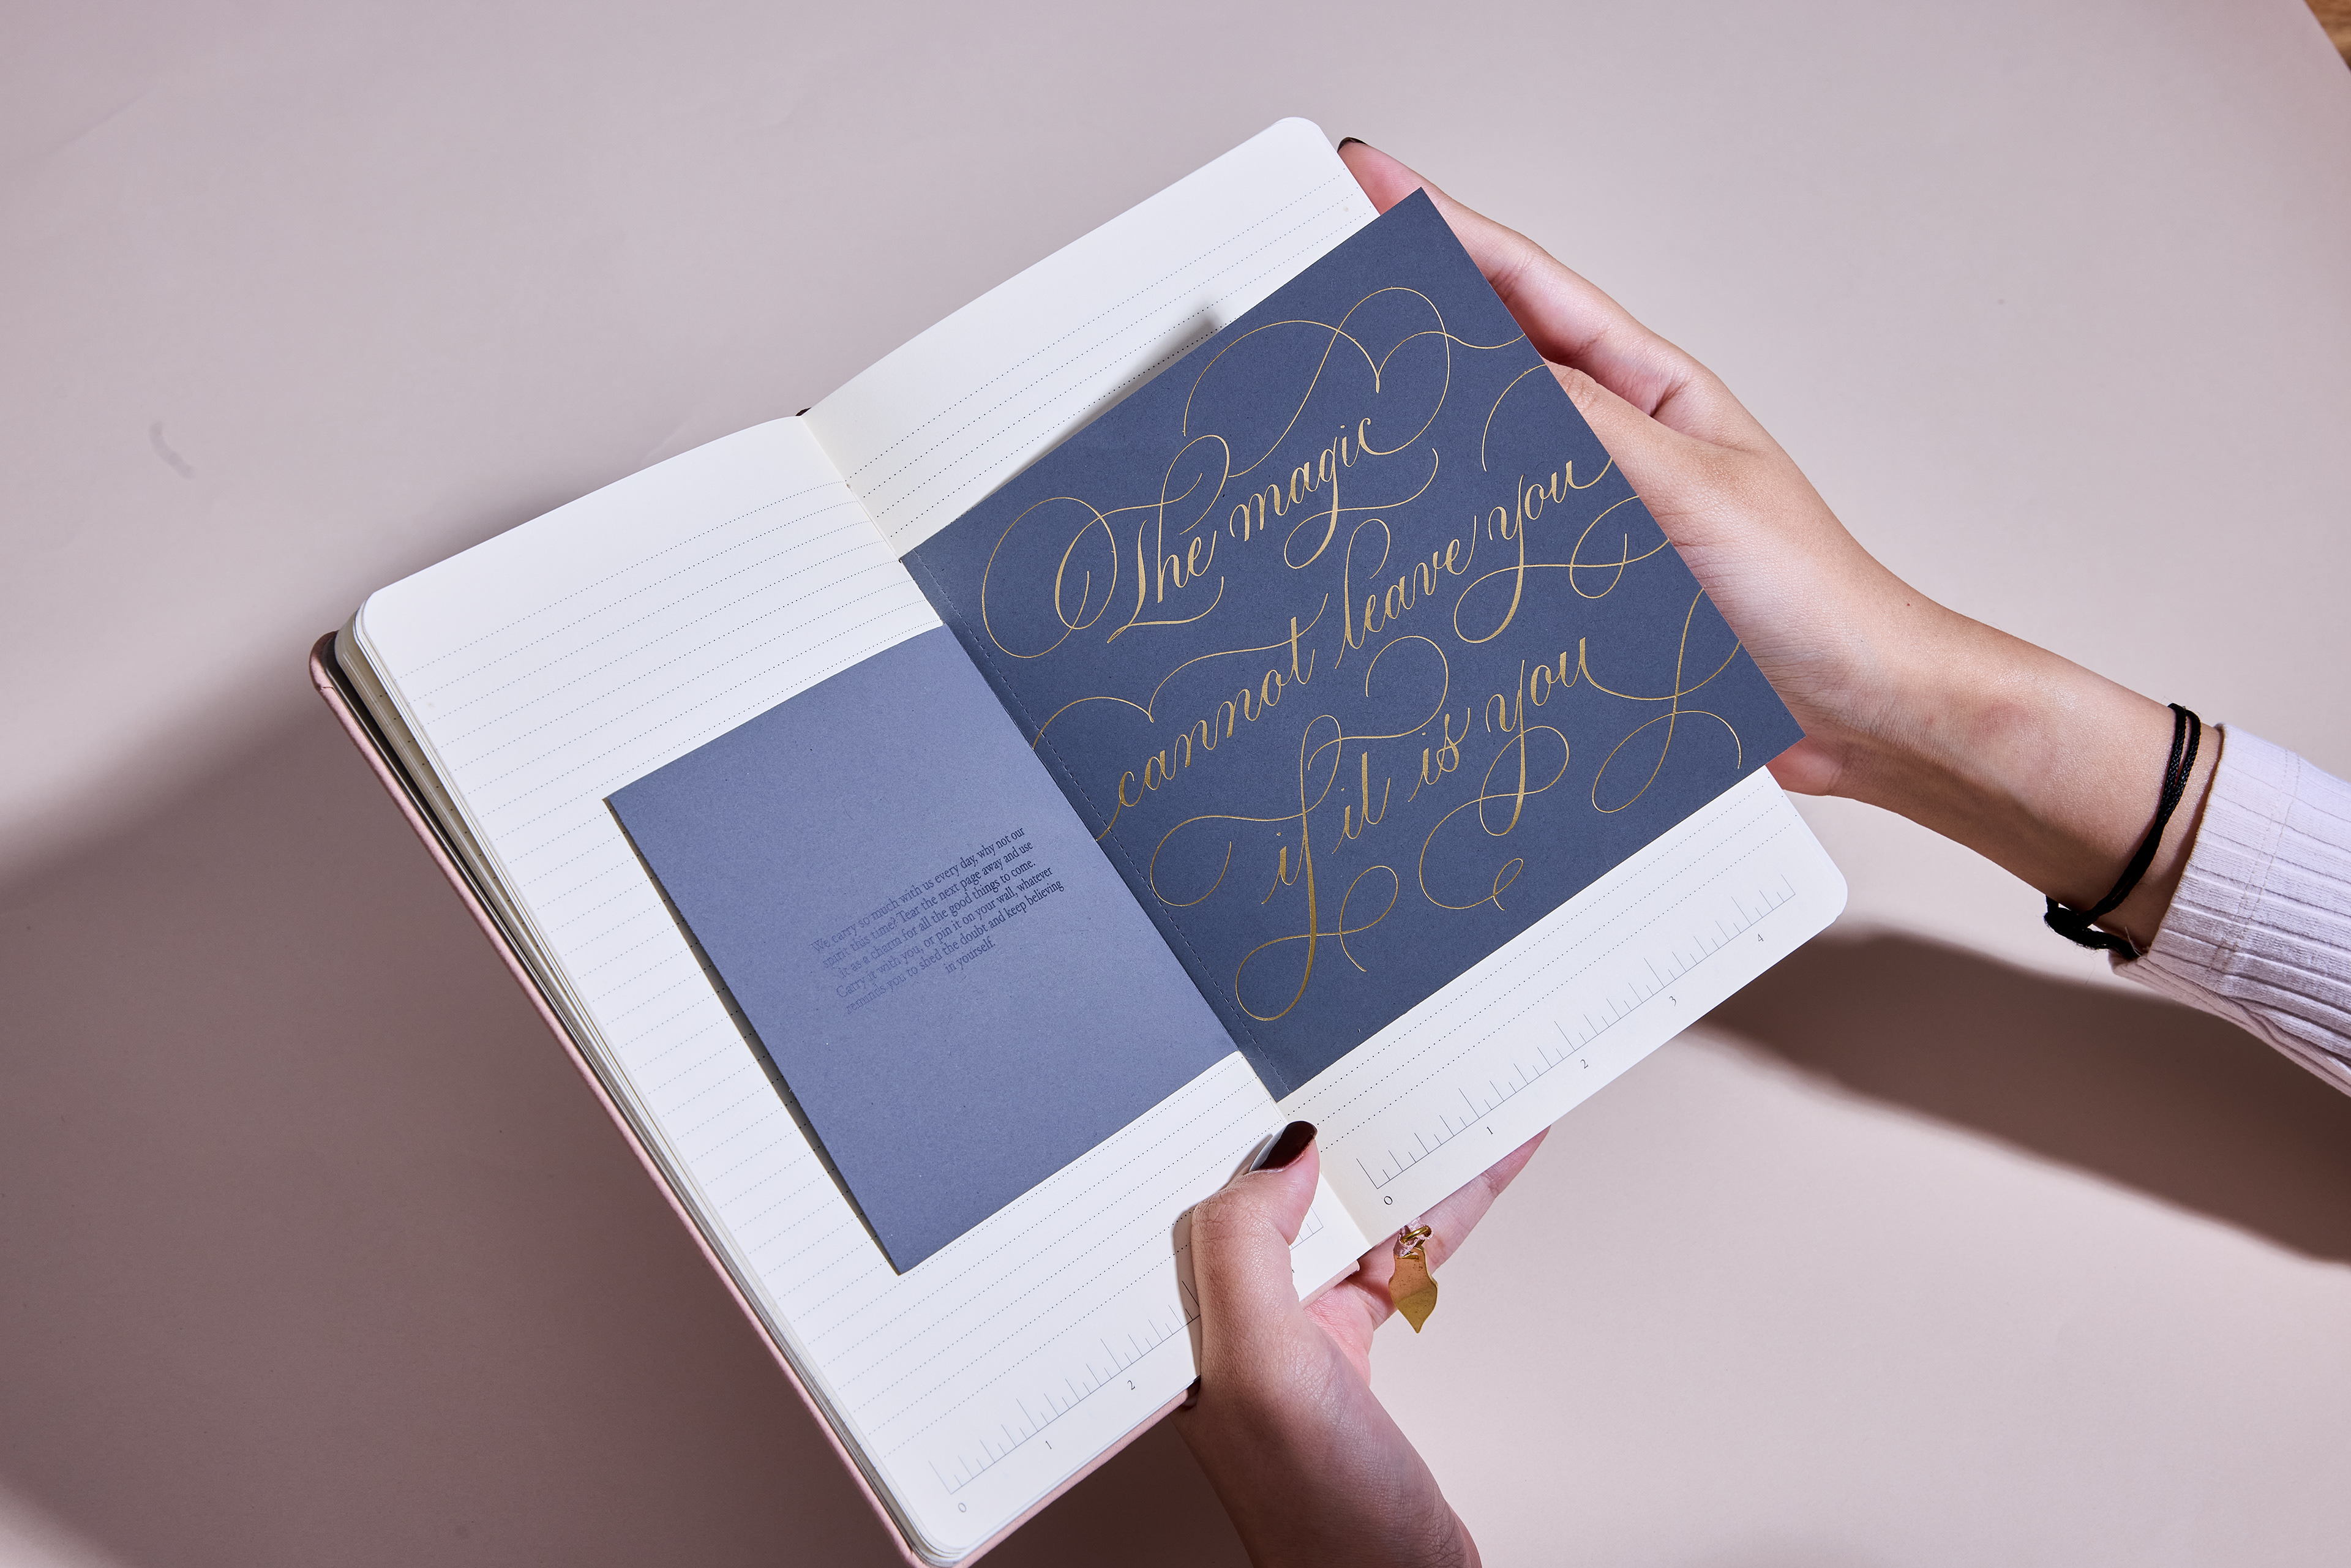 We carry so much with us every day, why not our
spirit this time? Tear the next page away and use
it as a charm for all the good things to come.
Carry it with you, or pin it on your wall, whatever
reminds you to shed the doubt and keep believing
in yourself.
The magic
cannot leave you
if it is you
0 1 2
0 1 2 3 4